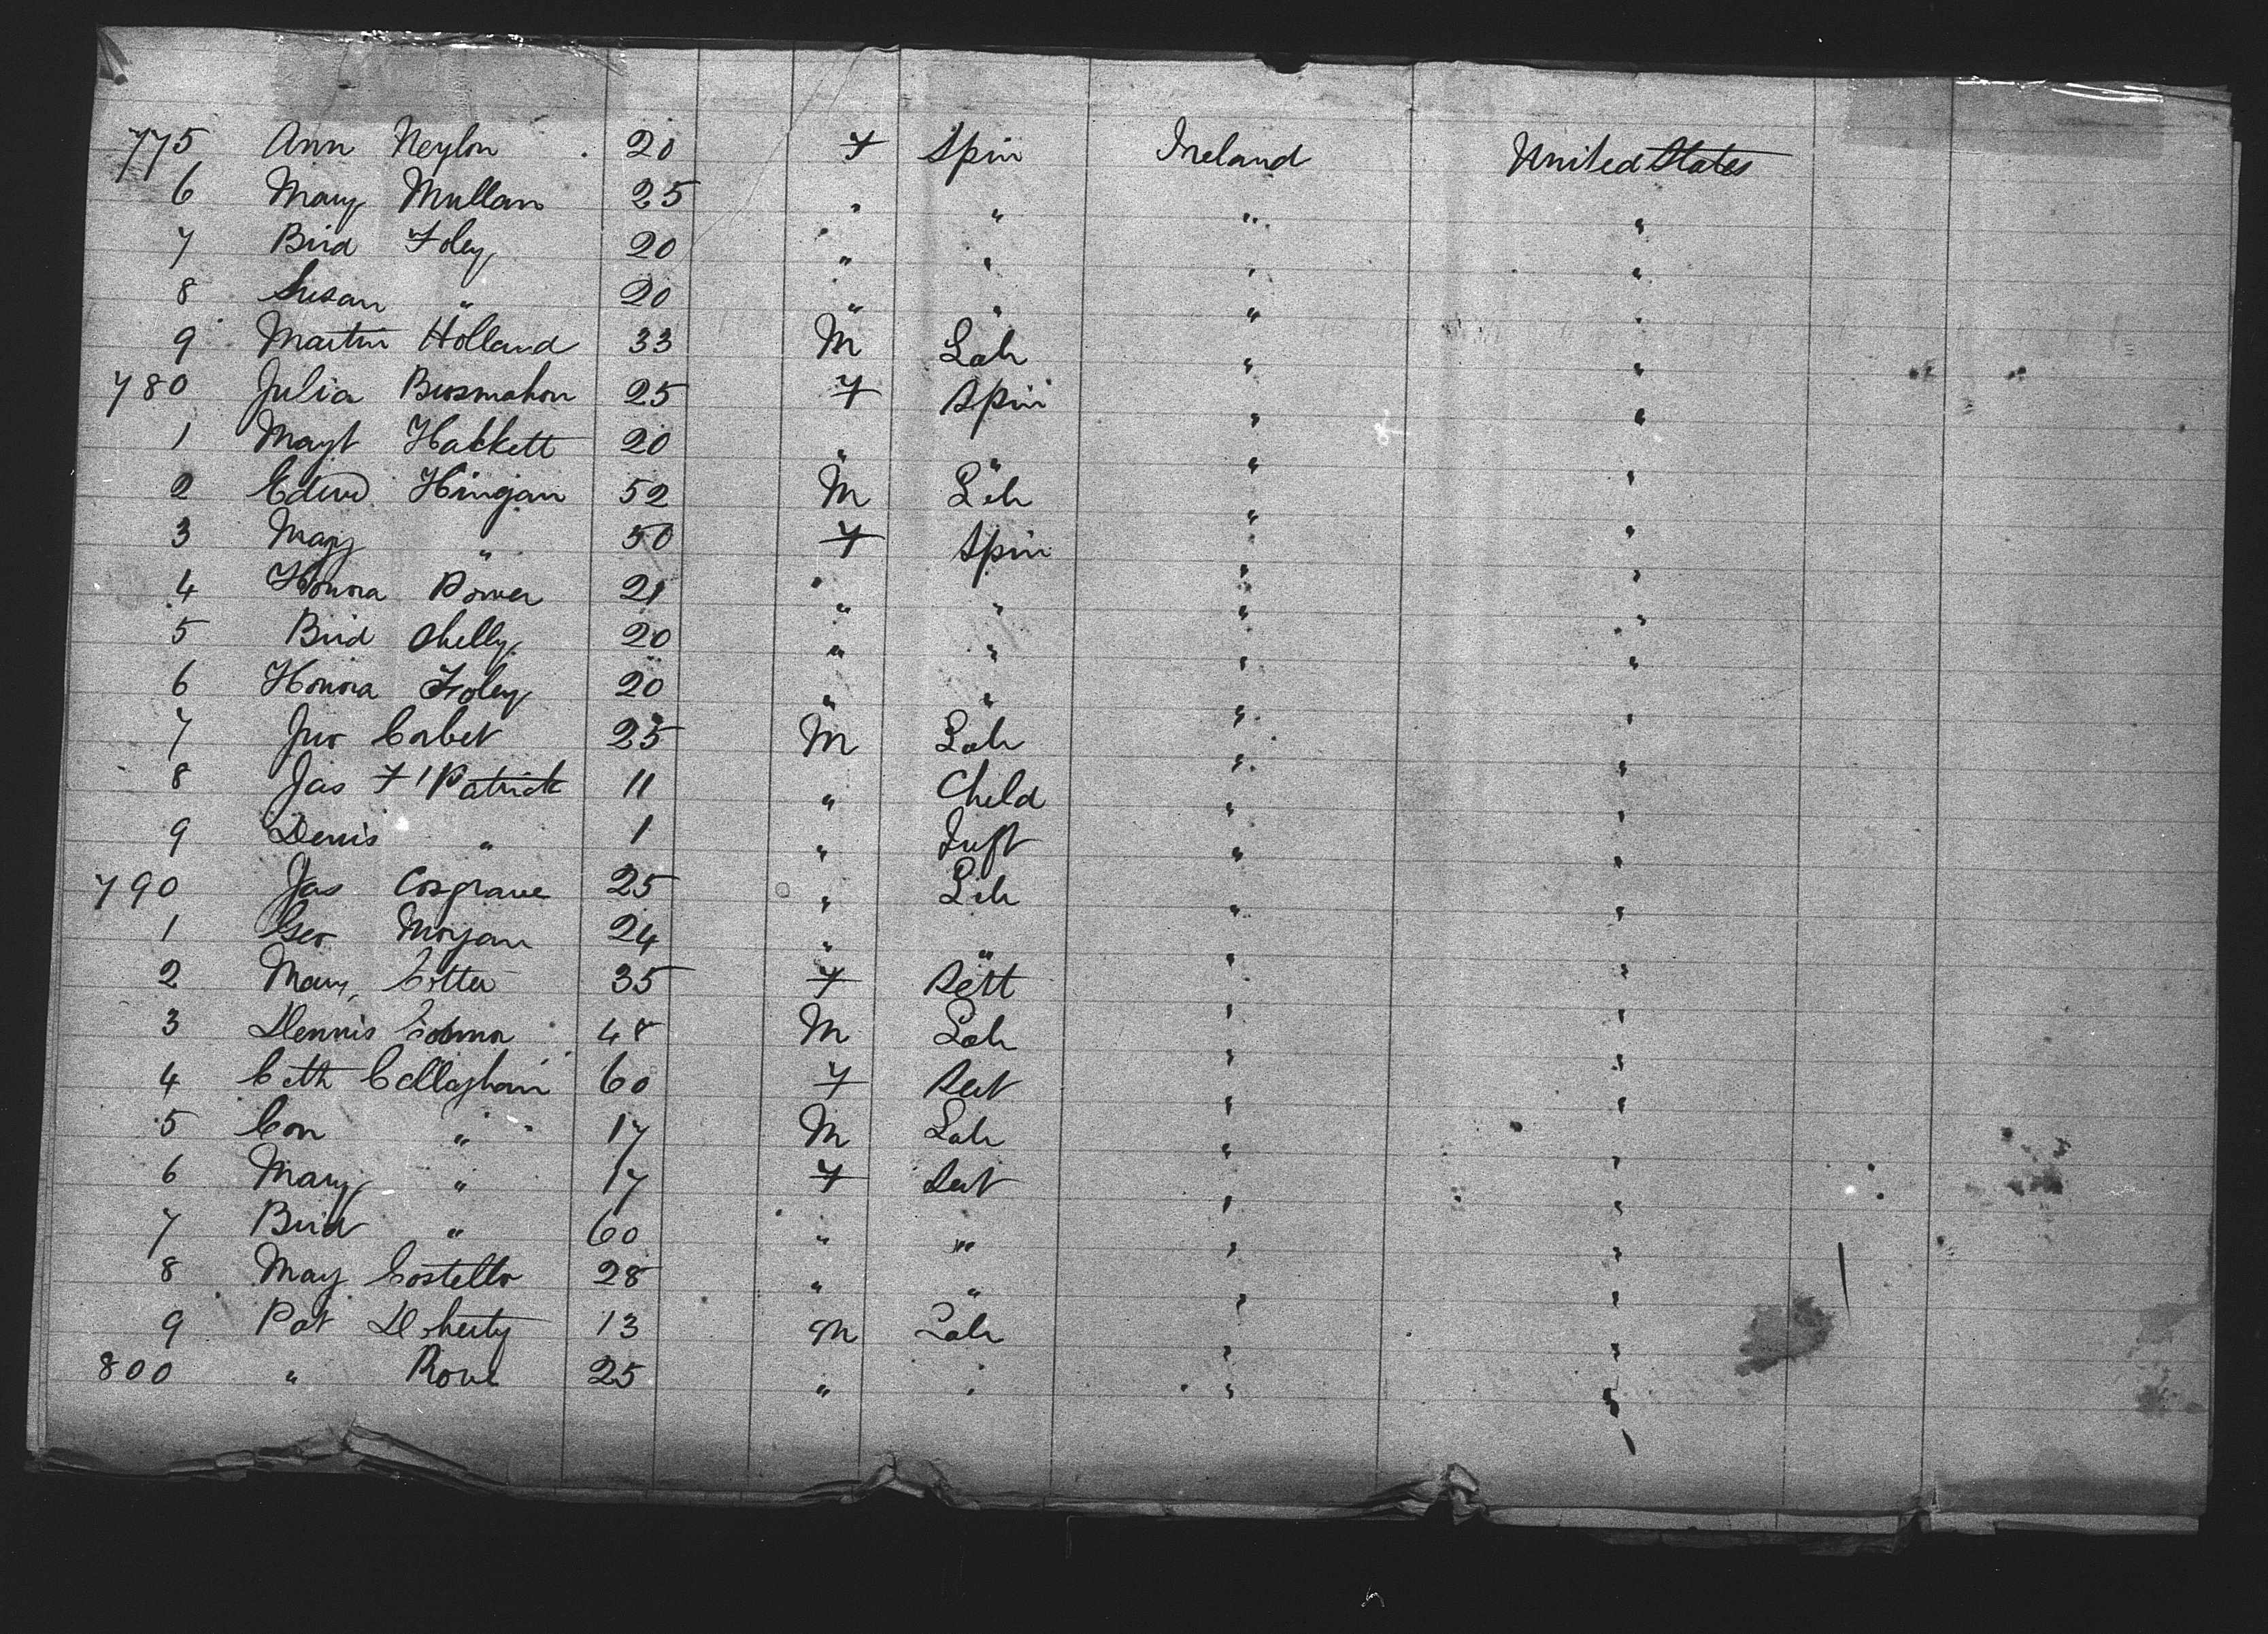 775 Ann Neylon 20 F Spin Ireland United States
6 Mary Mullan 25 " " " "
7 Brid Foley 20 " " " "
8 Susan " 20 " " " "
9 Martin Holland 33 M Lab " "
780 Julia Brosmahon 25 F Spin " "
1 Magt Hackett 20 " " " "
2 Edwd Hingan 52 M Lab " "
3 Mary " 50 F Spin " "
4 Honora Power 21 " " " "
5 Brid Shelly 20 " " " "
6 Honora Foley 20 " " " "
7 Jno Corbet 25 M Lab " "
8 Jas F'Patrick 11 " Child " "
9 Denis " 1 " Inft " "
790 Jas Cosgrave 25 " Lab " "
1 Geo Morgan 24 " " " "
2 Mary Cotter 35 F " "
3 Dennis 48 M Lab " "
4 Cath Callaghan 60 F " "
5 Con " 17 M Lab " "
6 Mary " 17 F " "
7 Brid " 60 " " " "
8 Mary Costello 28 " " " "
9 Pat Doherty 13 M Lab " "
800 " Rowe 25 " " " "